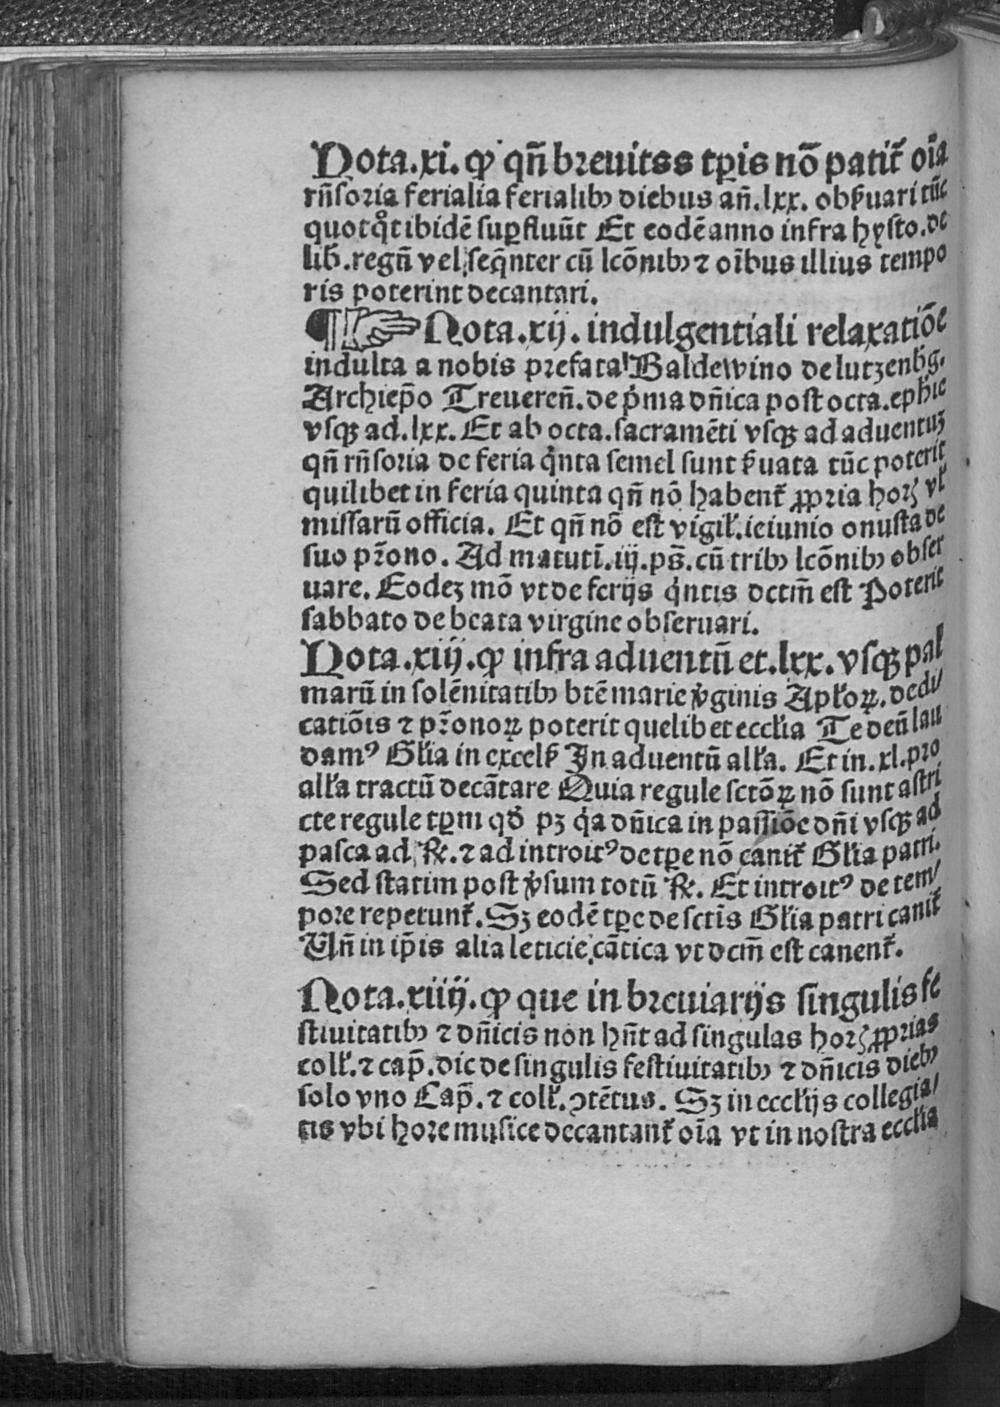 Nota.xi.ꝙ qn̄ breuitas tꝑis nō patit᷒ oīa
rn̄soria ferialia ferialibꝫ diebus an̄.lxx. obẜuari tūc
quotqͦt ibidē suꝑfluūt Et eodē anno infra hysto.de
lib̄.regn̄ vel seq̄nter cū lcōnibꝫ ⁊ oībus illius tempo
ris poterint decantari.
¶☞ Nota.xij. indulgentiali relaxatiōe
indulta a nobis prefata Baldewino de lutzenb̄g.
Archiep̄o Treueren̄.de pͥma dn̄ica post octa.ephīe
vsqꝫ ad.lxx. Et ab octa.sacramēti vsqꝫ ad aduentuꝫ
qn̄ rn̄soria de feria qͥnta semel sunt ẜuata tūc poterit
quilibet in feria quinta qn̄ nō habent᷒ ꝓpria horꝝ vl̄
missarū officia. Et qn̄ nō est vigil̄.ieiunio onusta de
suo pr̄ono. Ad matuti̅.iij.ps̄.cū tribꝫ lcōnibꝫ obser
uare. Eodeꝫ mō vt de ferijs qͥntis dctm̄ est Poterit
sabbato de beata virgine obseruari.
Nota.xiij.ꝙ infra aduentū et.lxx.vsqꝫ pal
marū in solēnitatibꝫ btē marie v̓ginis Apl̓oꝝ.dedi/
catiōis ⁊ pr̄onoꝝ poterit quelibet eccl̓ia Te deū lau
damꝰ Gl̓ia in excelẜ In aduentū all̓a. Et in.xl.pro
all̓a tractū decātare Quia regule sctōꝝ nō sunt astri
cte regule tꝑm qd̓ pꝫ qͥa dn̄ica in passiōe dn̄i vsqꝫ ad
pasca ad ℟.⁊ ad introitꝰ de tꝑe nō canit᷒ Gl̓ia patri.
Sed statim post v̓sum totū ℟. Et introitꝰ de tem/
pore repetunt᷒.Sꝫ eodē tꝑe de sctīs Gl̓ia patri canit᷒
Un̄ in ip̄is alia leticie cātica vt dcm̄ est canent᷒.
Nota.xiiij.ꝙ que in breuiarijs singulis fe
stiuitatibꝫ ⁊ dn̄icis non hn̄t ad singulas horꝝ ꝓprias
coll̓.⁊ cap̄.dic de singulis festiuitatibꝫ ⁊ dn̄icis diebꝫ
solo vno Cap̄.⁊ coll̓.ↄtētus. Sꝫ in eccl̓ijs collegia/
tis vbi hore musice decantant᷒ oīa vt in nostra eccl̓ia